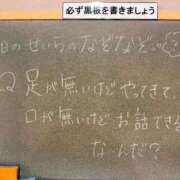 必ず黒板を書きましょう
今日のせいらのなぞなぞ♡?
Q 足が無いけどやってきて、
口が無いけどお話できる
なんだ?